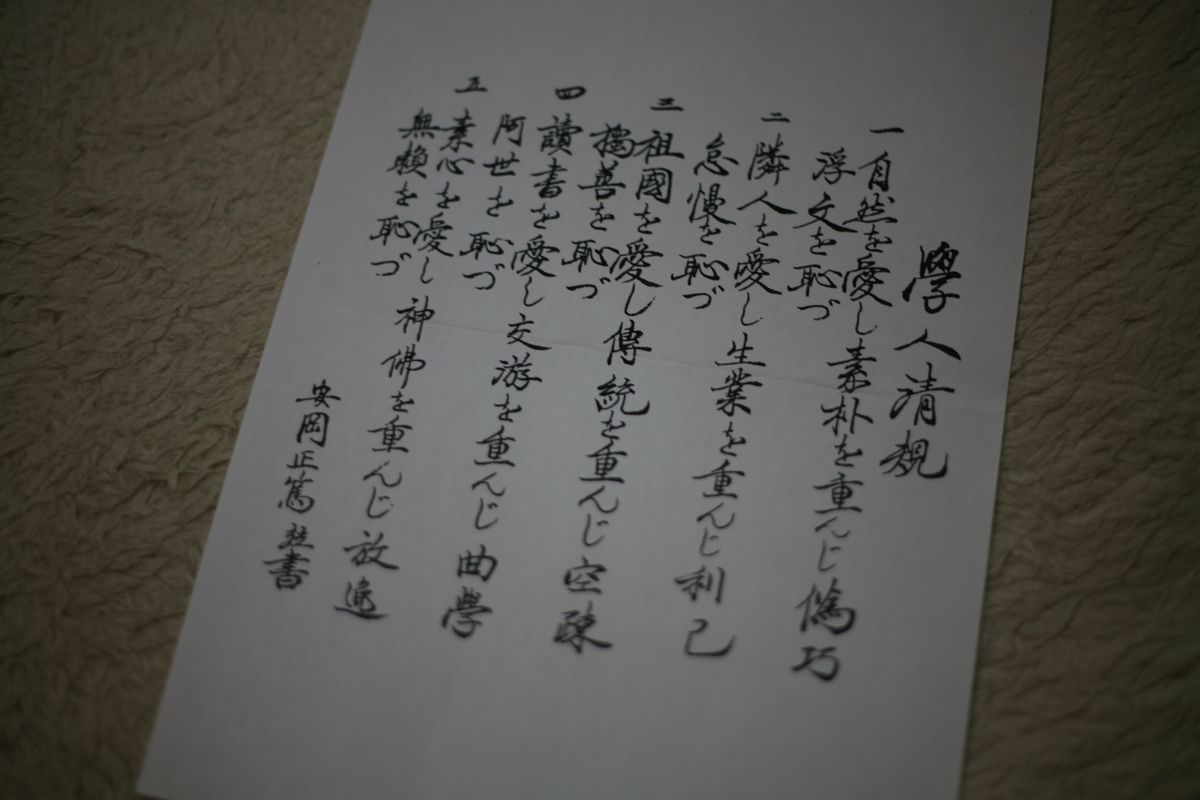 學人清規
一 自然を愛し素朴を重んじ偽巧
浮文を恥づ
二 隣人を愛し生業を重んじ利己
怠慢を恥づ
三 祖國を愛し傳統を重んじ空疎
獨善を恥づ
四 讀書を愛し交游を重んじ曲學
阿世を恥づ
五 素心を愛し神佛を重んじ放逸
無賴を恥づ
安岡正篤 書